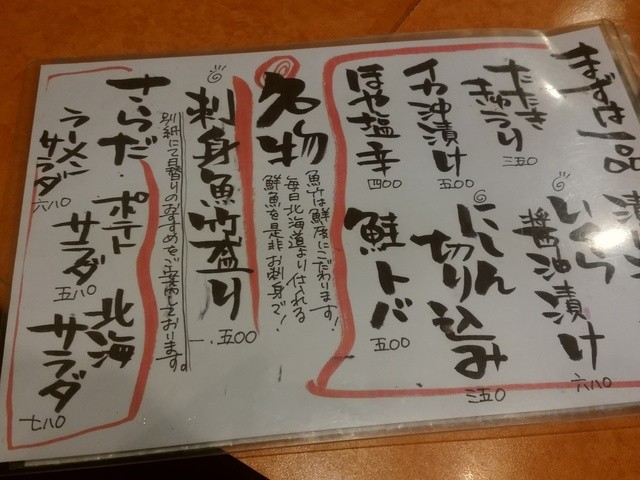 まずは一品
たたき
きゅうり
三五〇
イカ沖漬け
五〇〇
ほや塩辛
四〇〇
いくら
醤油漬け
六八〇
にしん
切り込み
三五〇
鮭トバ
五〇〇
名物
魚竹は鮮度にこだわります!
毎日北海道より仕入れる
鮮魚を是非お刺身で!
刺身魚竹盛り
一、五〇〇
別紙にて日替りのおすすめをご案内しております。
さらだ
ラーメン
サラダ
六八〇
ポテト
サラダ
五八〇
北海
サラダ
七八〇